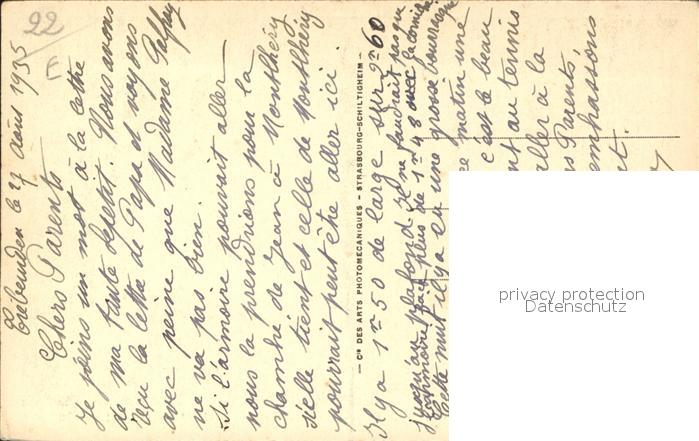 22
E
Trébeurden le 27 Août 1935
Chers Parents
Je joins un mot à la lettre
de ma tante Lepetit. Nous avons
reçu la lettre de Papa et voyons
avec peine que Madame
ne va pas bien.
Si l'armoire pouvait aller
nous la prendrions pour la
chambre de Jean à Montlhéry
si elle tient et celle de Montlhéry
pourrait peut être aller ici.
— Cie DES ARTS PHOTOMECANIQUES - STRASBOURG-SCHILTIGHEIM —
Il y a 1m50 de large sur 2m60
jusqu'au plafond il ne faudrait pas que
l'armoire fait plus de 1m48 avec la corniche
Cette nuit il y a eu une grosse bourrasque
ce matin une
c'est le beau
nt au tennis
aller à la
s Parents
embrassons
t.
privacy protection
Datenschutz